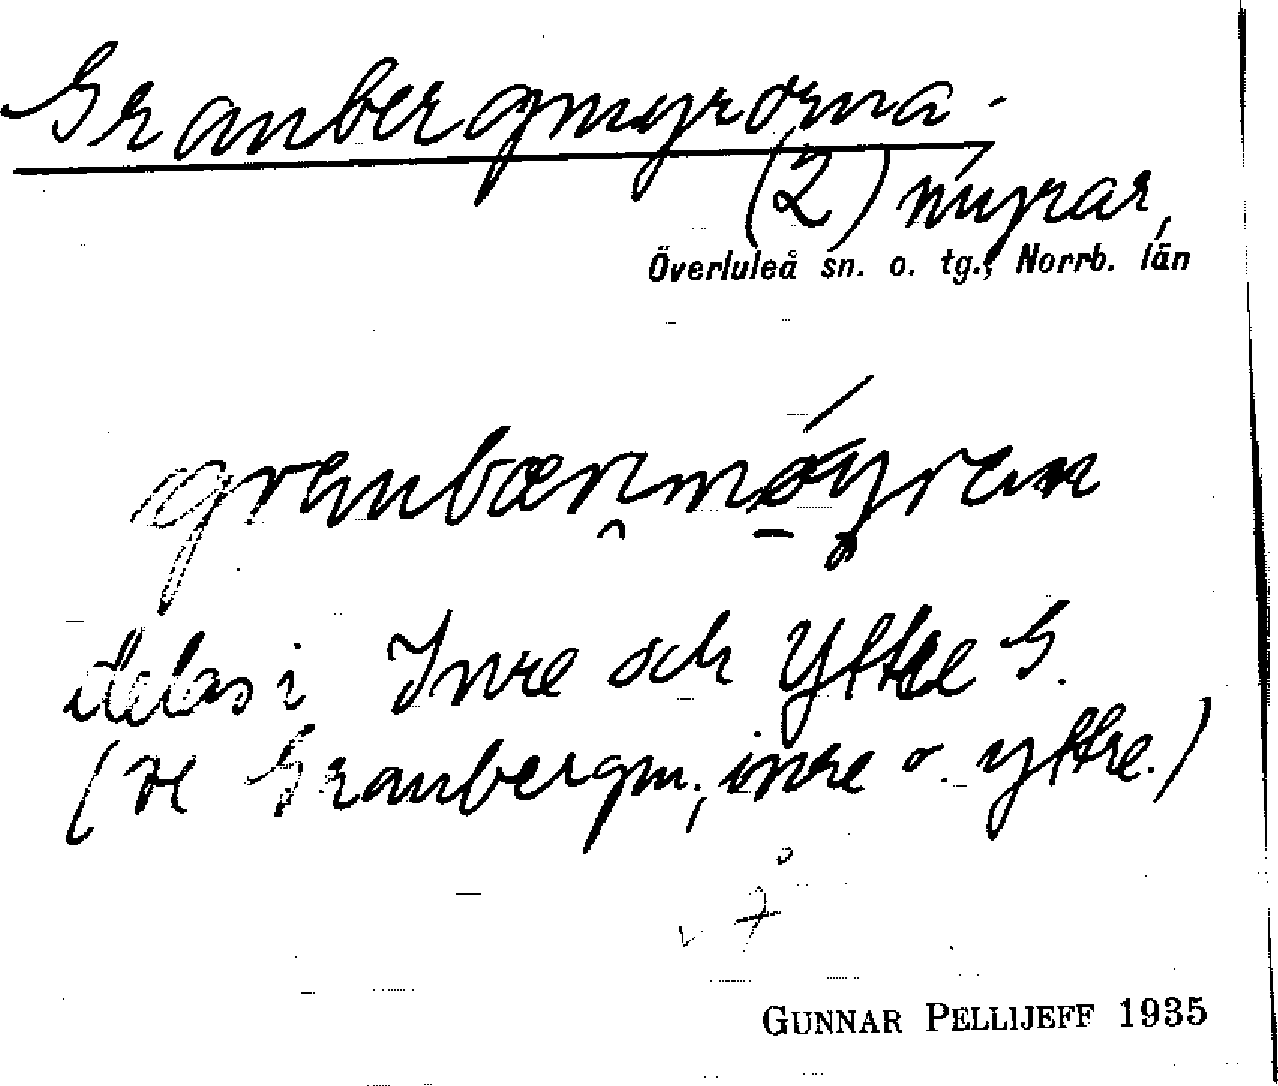 Granbergmyrorna.
(2) myrar,
Överluleå sn. o. tg., Norrb. län
delas i Inre och Yttre G.
(se Granbergm., inre o. yttre.)
GUNNAR PELLIJEFF 1935